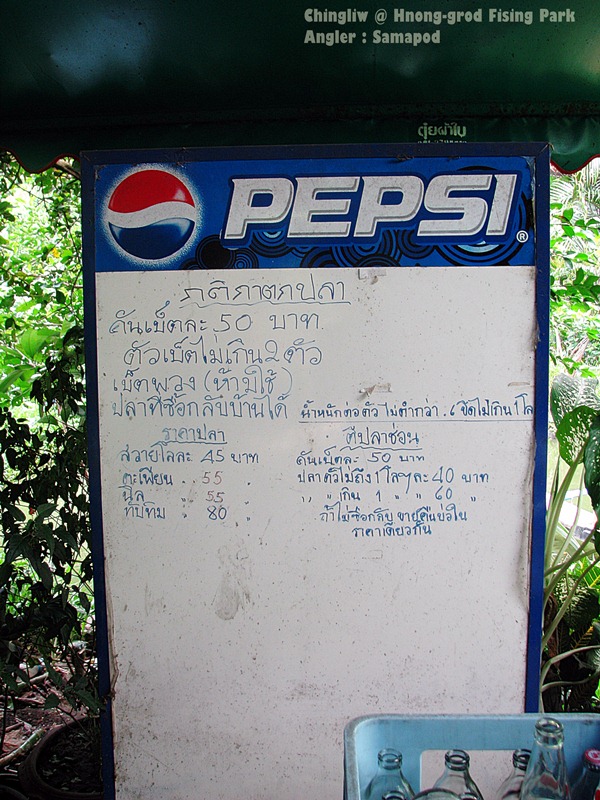 Chingliw @ Hnong-grod Fising Park
Angler : Samapod
ตุ๋ยผ้าใบ
PEPSI
®
กติกาตกปลา
คันเบ็ดละ 50 บาท
ตัวเบ็ดไม่เกิน 2 ตัว
เบ็ดพวง (ห้ามใช้)
ปลาที่ซื้อกลับบ้านได้ น้ำหนักต่อตัวไม่ต่ำกว่า .6 ขีดไม่เกิน 1 โล
ราคาปลา
สวายโลละ 45 บาท
ตะเพียน „ 55 „
นิล „ 55 „
ทับทิม „ 80 „
ตีปลาช่อน
คันเบ็ดละ 50 บาท
ปลาตัวไม่ถึง 1 โลๆละ 40 บาท
„ „ เกิน 1 „ „ 60 „
ถ้าไม่ซื้อกลับ ขายคืนบ่อใน
ราคาเดียวกัน